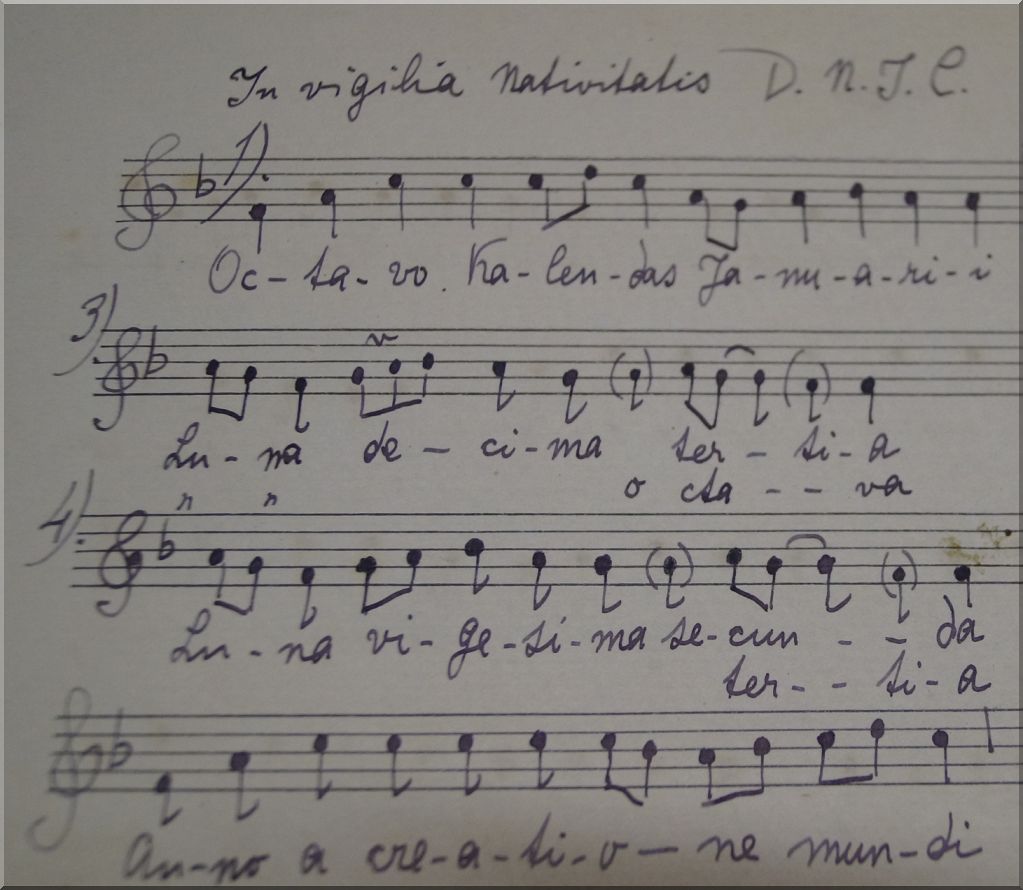 In vigilia Nativitatis D. N. J. C.
1)
Oc-ta-vo. Ka-len-das Ja-nu-a-ri-i
3)
Lu-na de-ci-ma ter-ti-a
o cta--va
4)
Lu-na vi-ge-si-ma se-cun--da
ter--ti-a
An-no a cre-a-ti-o-ne mun-di